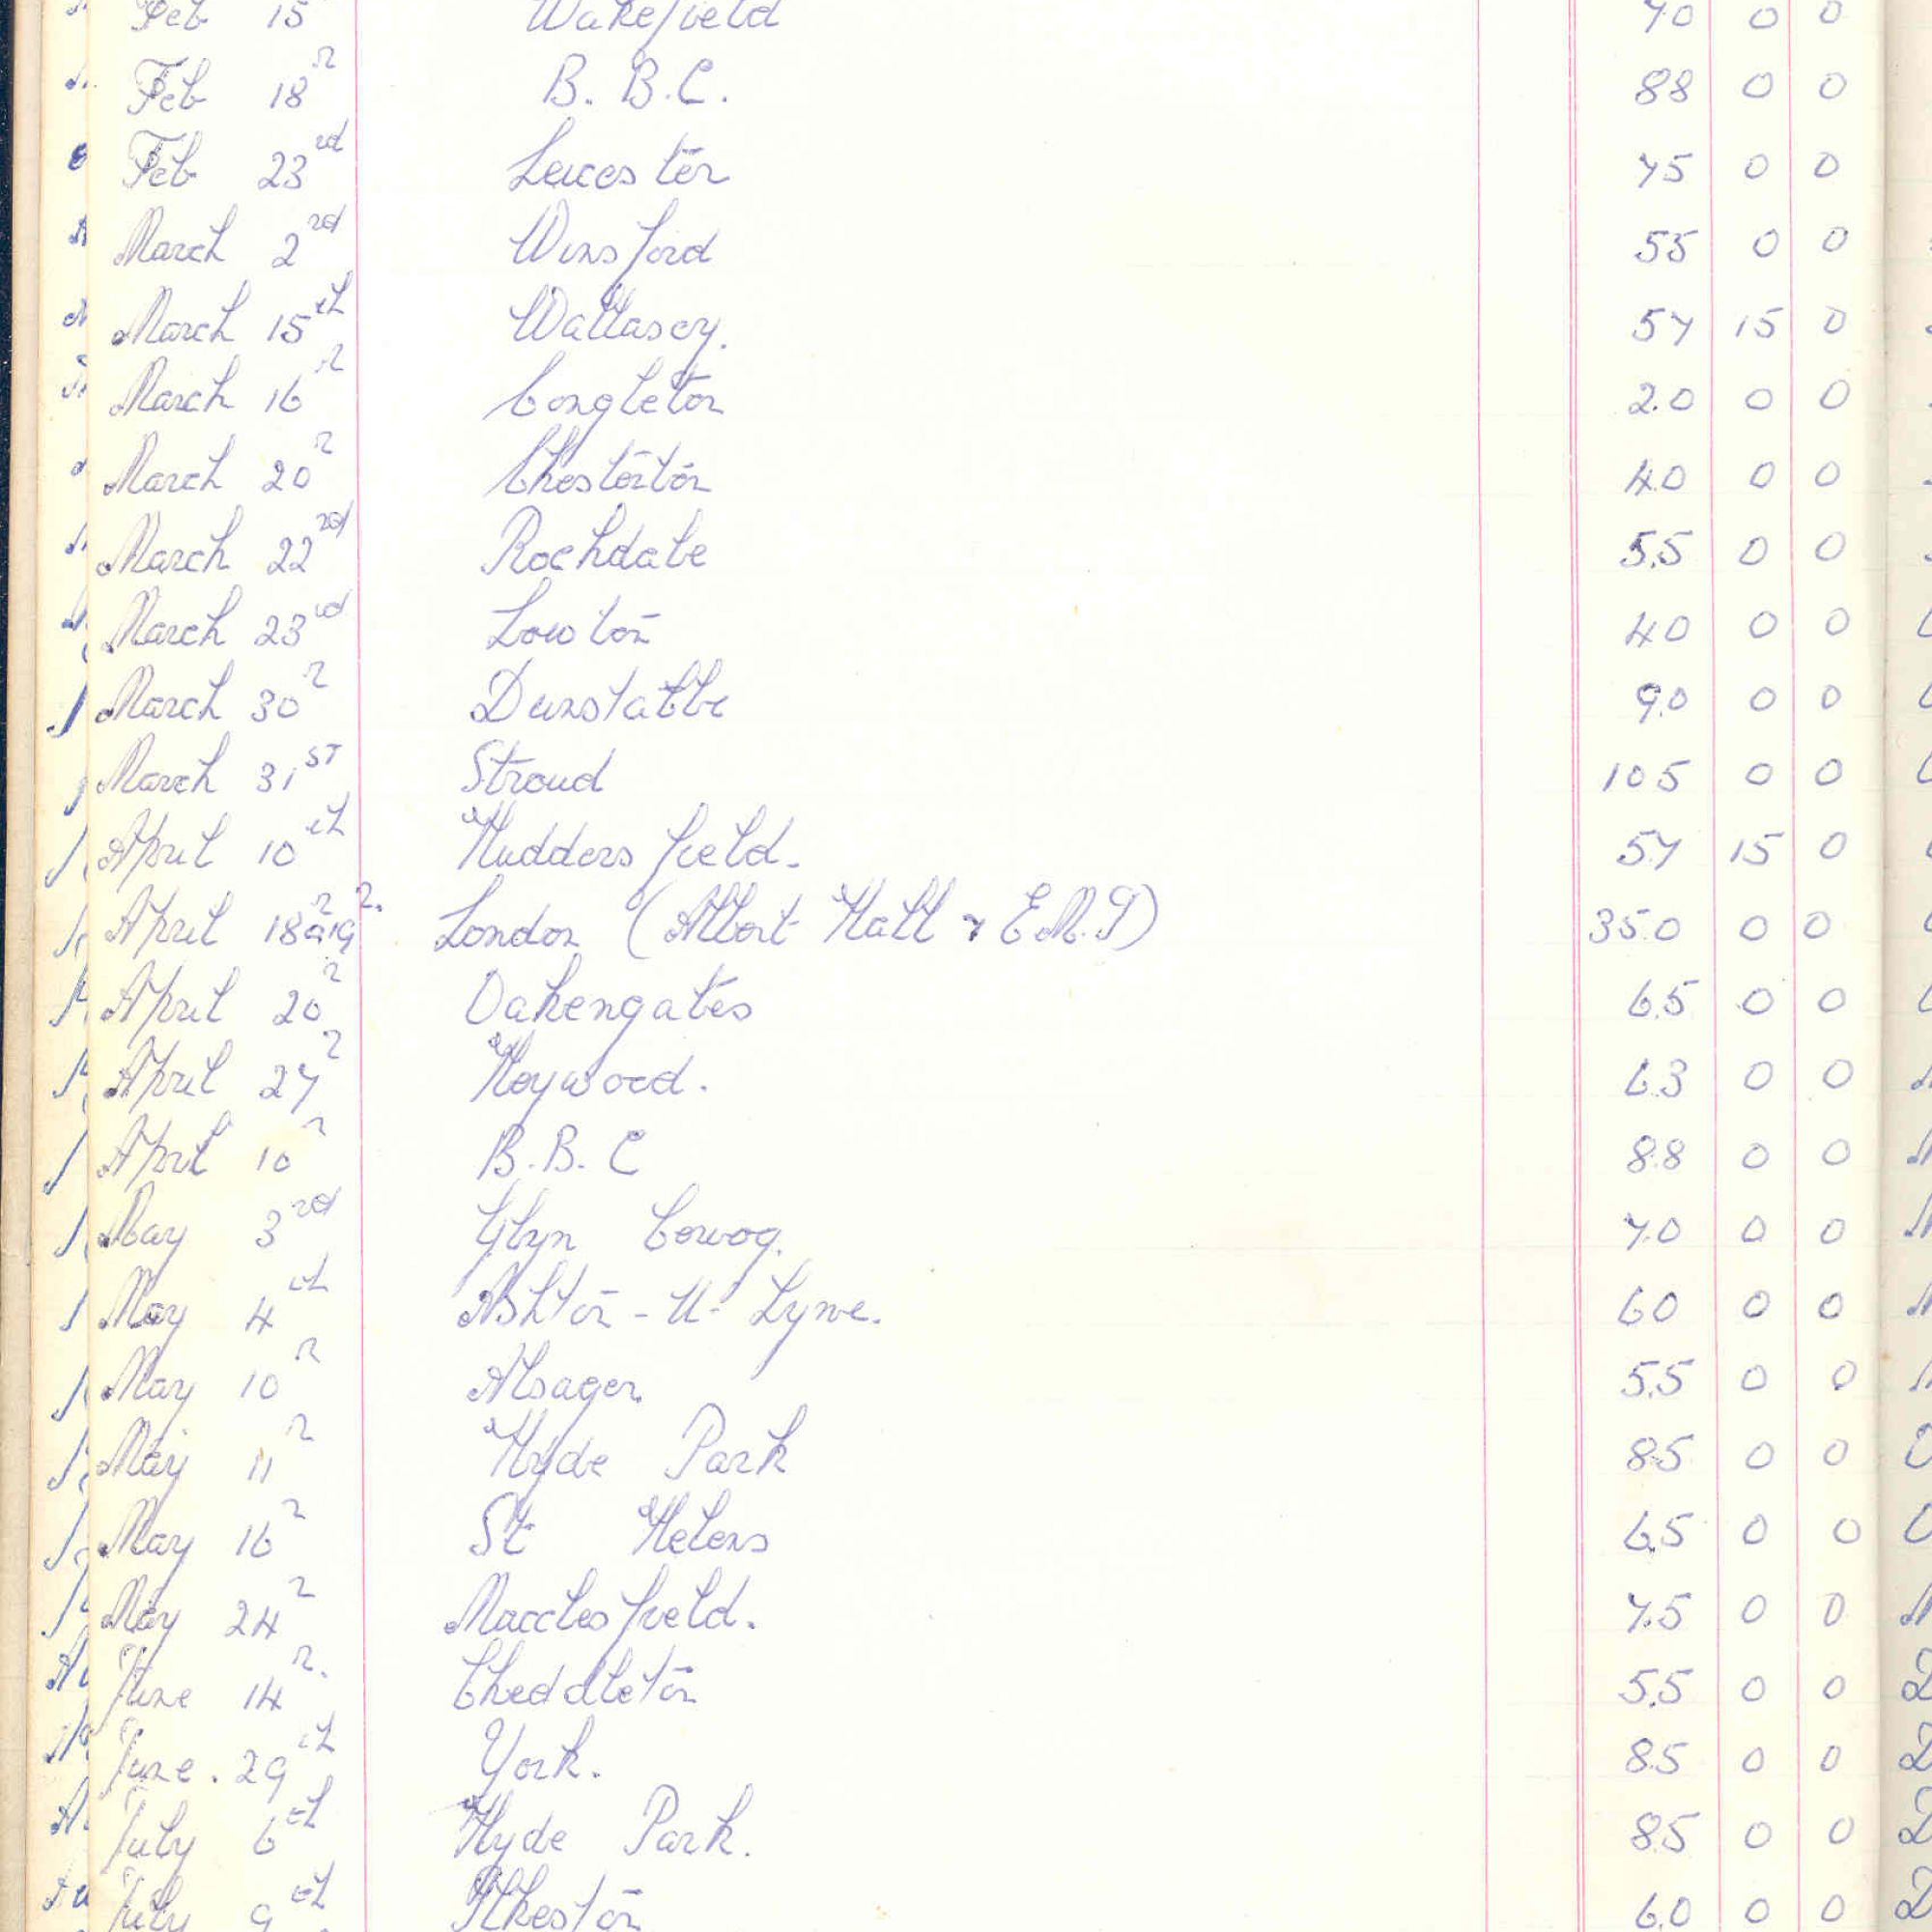 Feb 15 Wakefield 70 0 0
Feb 18th B. B.C. 88 0 0
Feb 23rd Leicester 75 0 0
March 2nd Winsford 55 0 0
March 15th Wallasey. 57 15 0
March 16th Congleton 20 0 0
March 20th Chesterton 40 0 0
March 22nd Rochdale 55 0 0
March 23rd Lowton 40 0 0
March 30th Dunstable 90 0 0
March 31ST Stroud 105 0 0
April 10th Huddersfield. 57 15 0
April 18th & 19th. London (Albert Hall & E.M.I) 350 0 0
April 20th Oakengates 65 0 0
April 27th Heywood. 63 0 0
April 10th B.B.C 88 0 0
May 3rd Glyn Corwog. 70 0 0
May 4th Ashton-U-Lyne. 60 0 0
May 10th Alsager. 55 0 0
May 11th Hyde Park 85 0 0
May 16th St Helens 65 0 0
May 24th Macclesfield. 75 0 0
June 14th. Cheddleton 55 0 0
June. 29th York. 85 0 0
July 6th Hyde Park. 85 0 0
July 9th Ilkeston 60 0 0